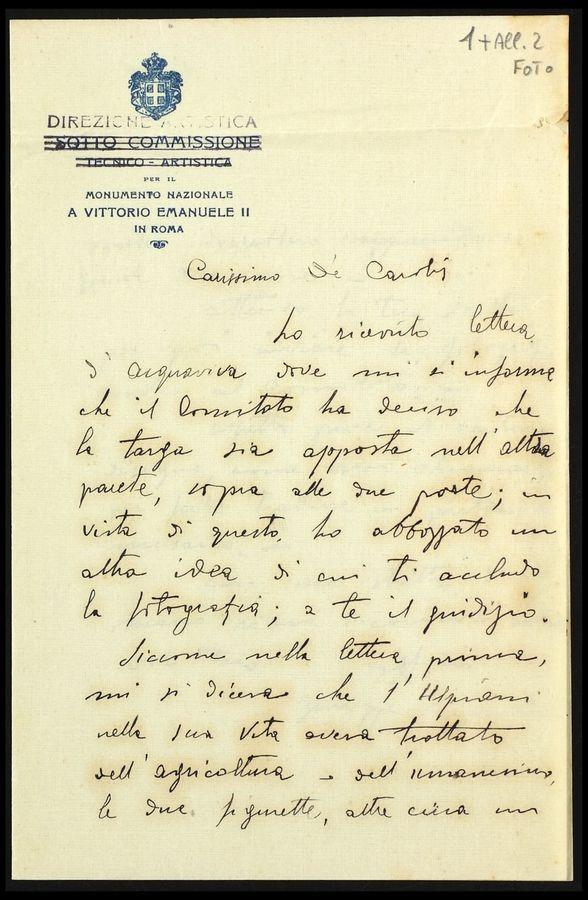 1 + All. 2
FOTO
DIREZIONE ARTISTICA
SOTTO COMMISSIONE
TECNICO - ARTISTICA
PER IL
MONUMENTO NAZIONALE
A VITTORIO EMANUELE II
IN ROMA
Carissimo De Carolis
ho ricevuto lettera
d'acquaviva dove mi si informa
che il Comitato ha deciso che
la targa sia apposta nell'altra
parete, sopra alle due porte; in
vista di questo, ho abbozzato un
altra idea di cui ti accludo
la fotografia; a te il giudizio.
Siccome nella lettera prima,
mi si diceva che l'Ulpiani
nella sua vita aveva trattato
dell'agricoltura e dell'umanesimo,
le due figurette, alte circa un